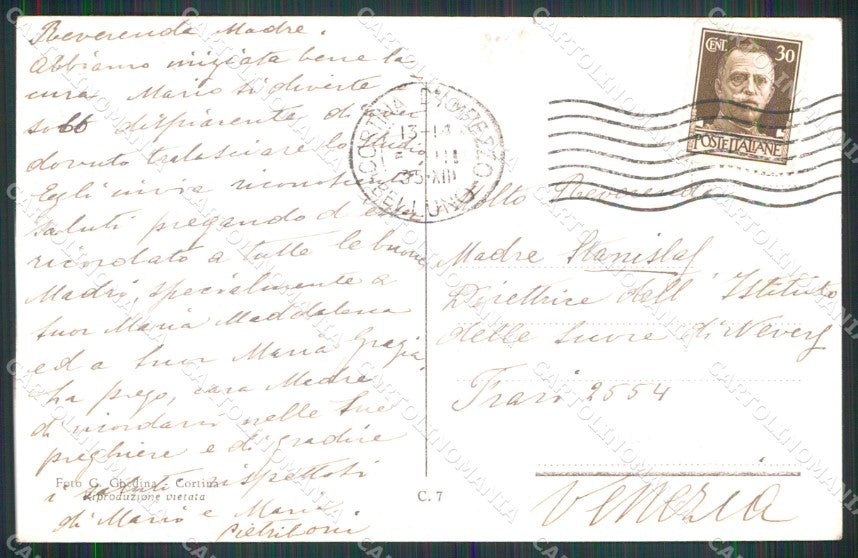 Reverenda Madre.
Abbiamo iniziata bene la
cura Mario si diverte
soltt dispiacente di aver
dovuto tralasciare lo studio
Egli invia riconoscenti
saluti pregando d'esser
ricordato a tutte le buone
Madri, specialmente a
Suor Maria Maddalena
ed a Suor Maria Grazia
La prego, cara Madre
di ricordarci nelle Sue
preghiere e di gradire
i saluti rispettosi
di Mario e Maria
Pietriboni
Foto G. Ghedina - Cortina
Riproduzione vietata
C. 7
CORTINA D'AMPEZZO
13-14
35-XIII
(BELLUNO)
CENT. 30
POSTE ITALIANE
Molto Reverenda
Madre Stanislas
Direttrice dell'Istituto
delle Suore di Nevers
Frari 2554
Venezia
CARTOLINOMANIA